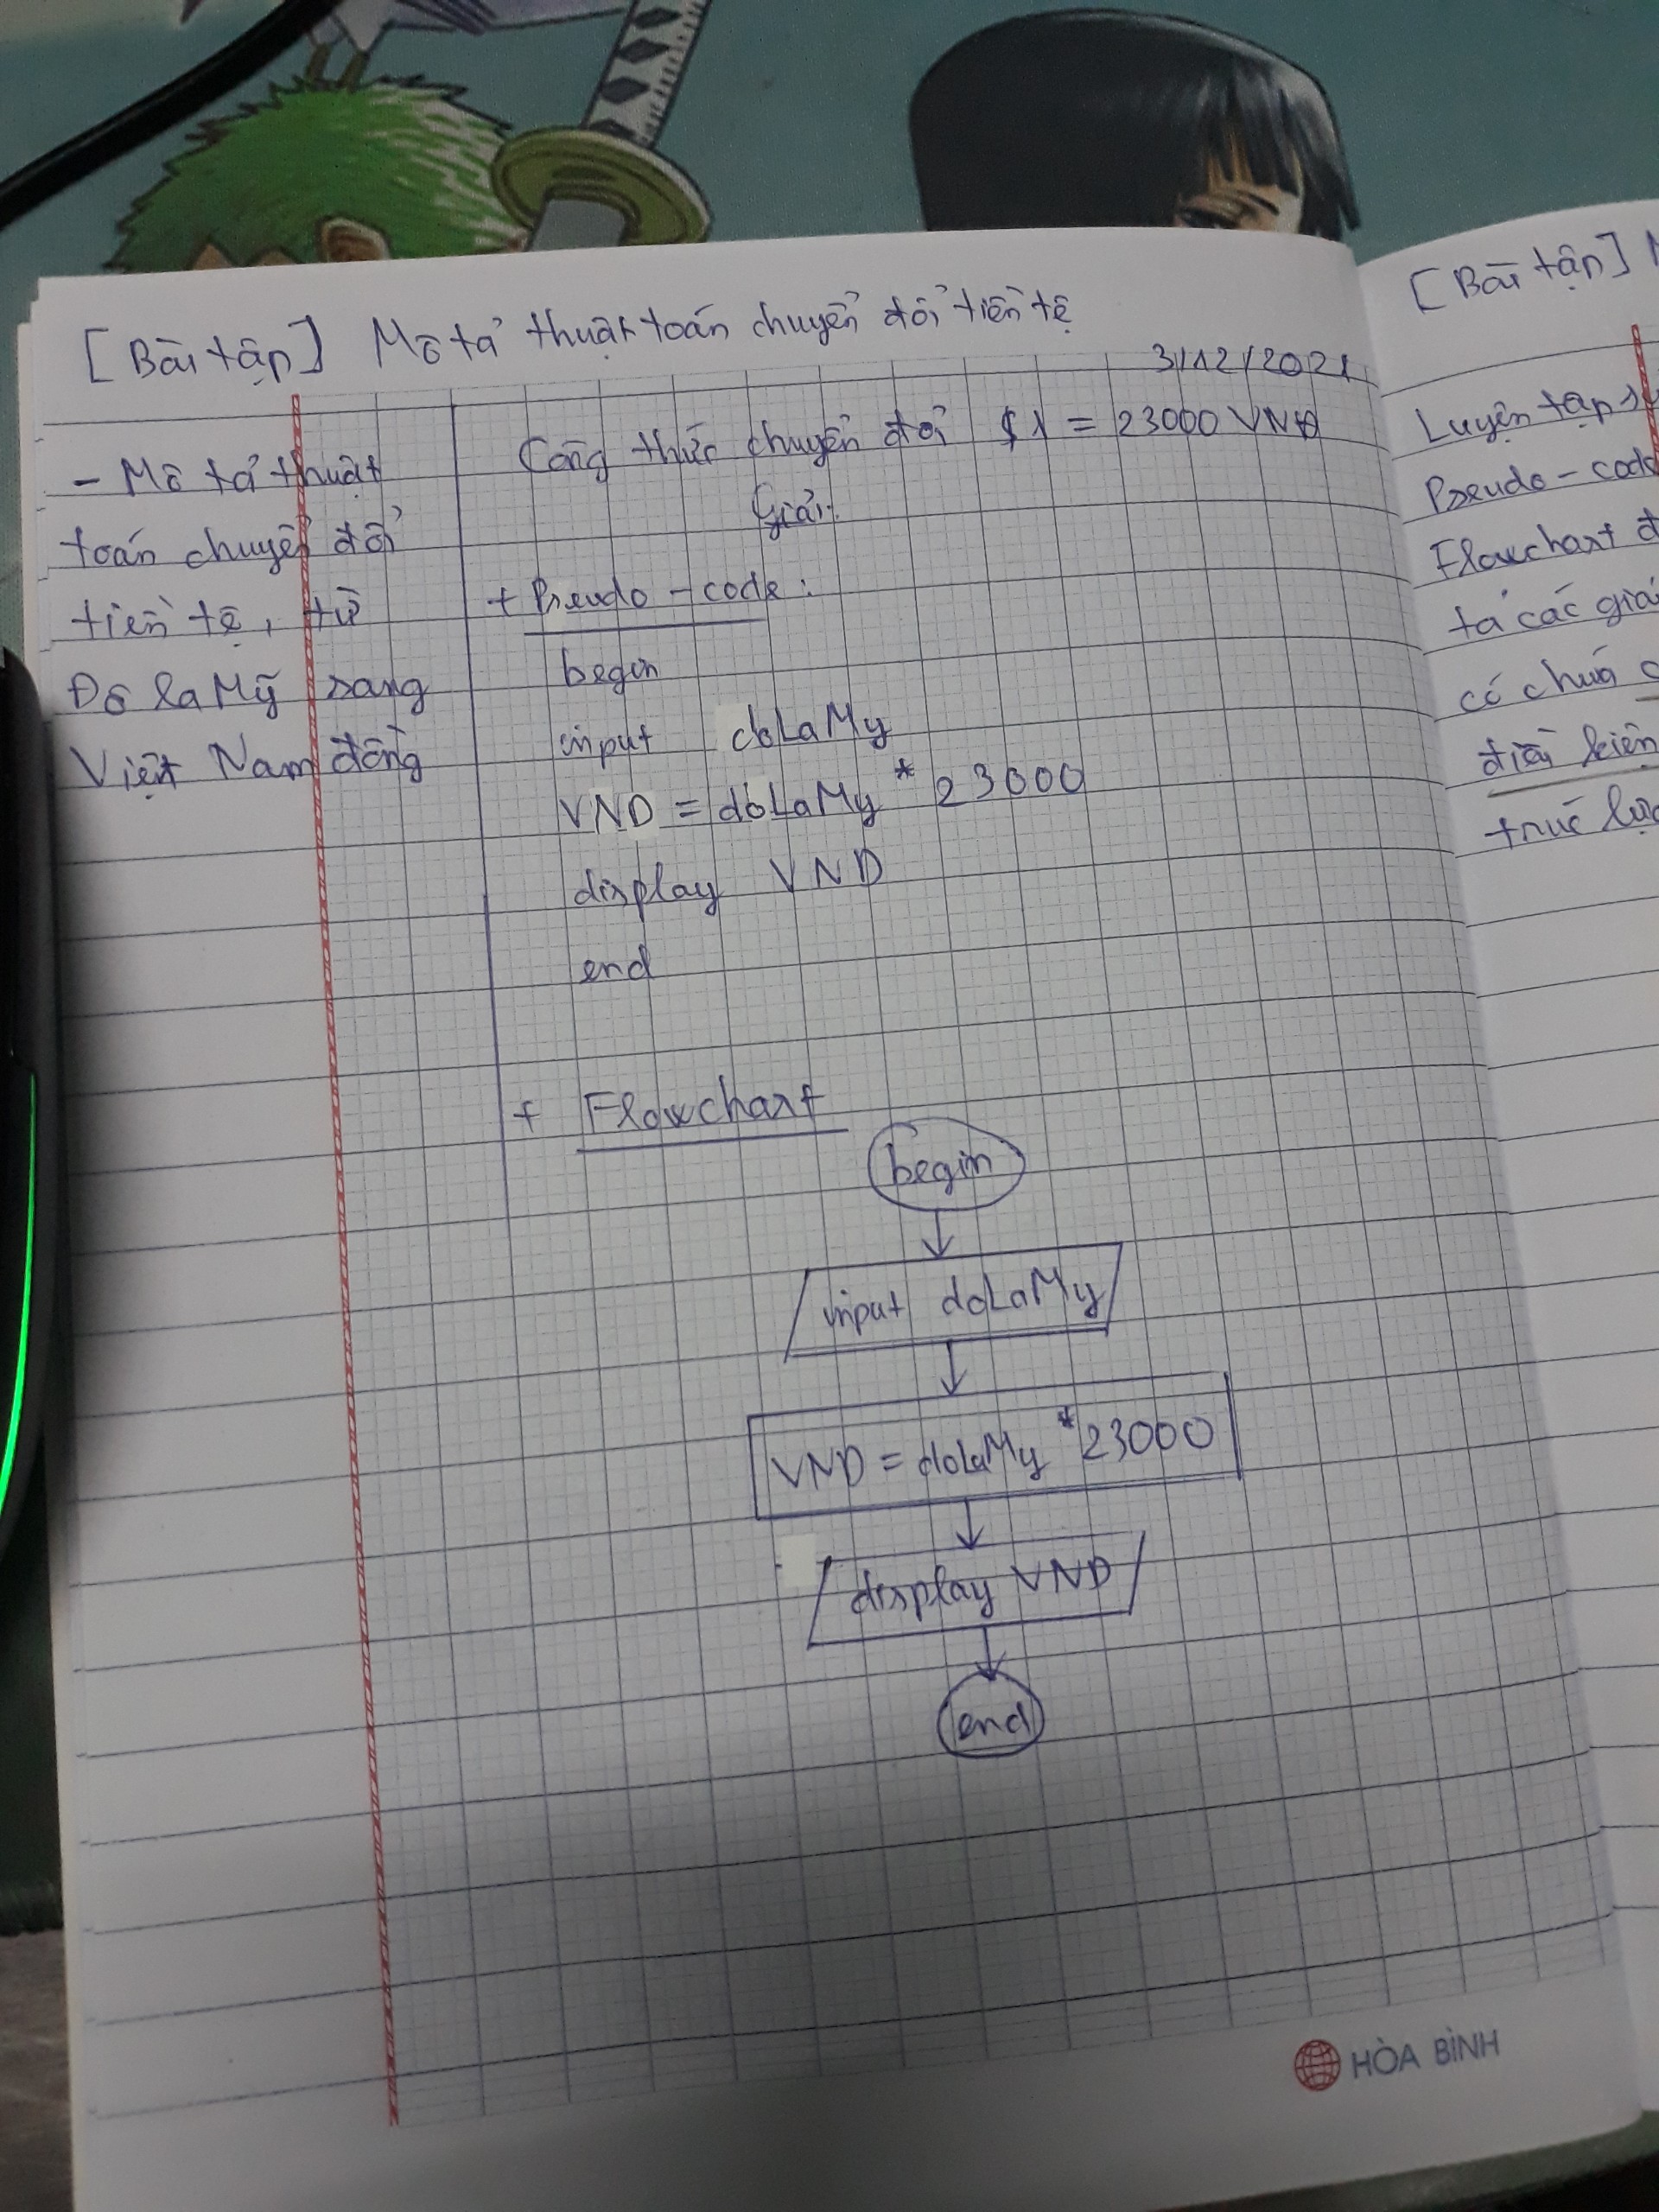 [Bài tập] Mô tả thuật toán chuyển đổi tiền tệ
3/12/2021
- Mô tả thuật
toán chuyển đổi
tiền tệ, từ
Đô la Mỹ sang
Việt Nam đồng
Công thức chuyển đổi $1 = 23000 VNĐ
Giải:
+ Pseudo-code:
begin
input doLaMy
VND = doLaMy * 23000
display VND
end
+ Flowchart
begin
input doLaMy
VND = doLaMy * 23000
display VND
end
HÒA BÌNH
[Bài tập]
Luyện tập
Pseudo-code
Flowchart
tả các
có chứa
điều kiện
trúc